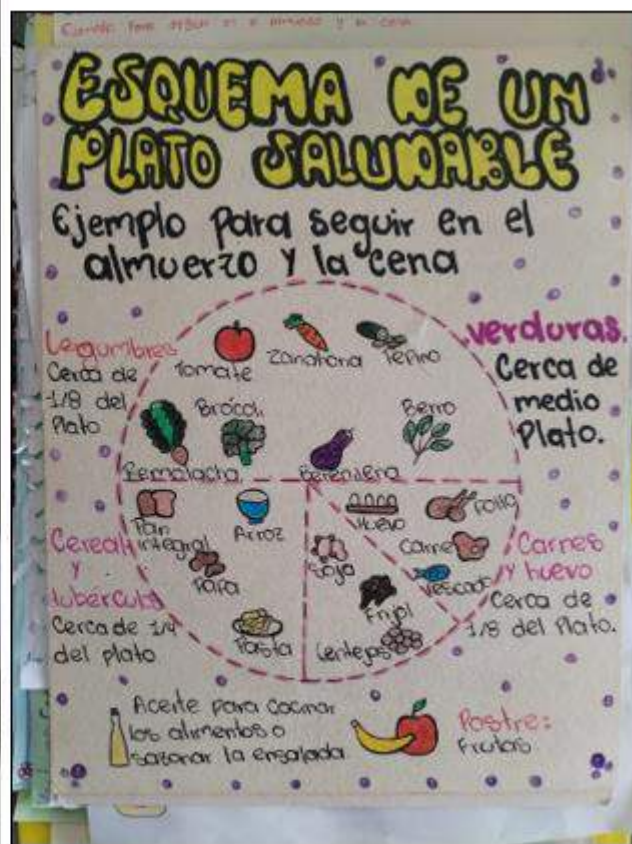 ESQUEMA DE UN
PLATO SALUDABLE
Ejemplo para seguir en el
almuerzo y la cena
Legumbres
Cerca de
1/8 del
Plato
verduras.
Cerca de
medio
Plato.
Tomate
Zanahoria
Pepino
Brócoli
Berro
Remolacha
Berenjena
Pan
integral
Arroz
Papa
Pasta
Huevo
Pollo
Carne
Pescado
Soja
Frijol
Lentejas
Cereal
y
tuberculo
Cerca de 1/4
del plato
Carnes
y huevo
Cerca de
1/8 del Plato.
Aceite para cocinar
los alimentos o
sazonar la ensalada
Postre:
Frutas